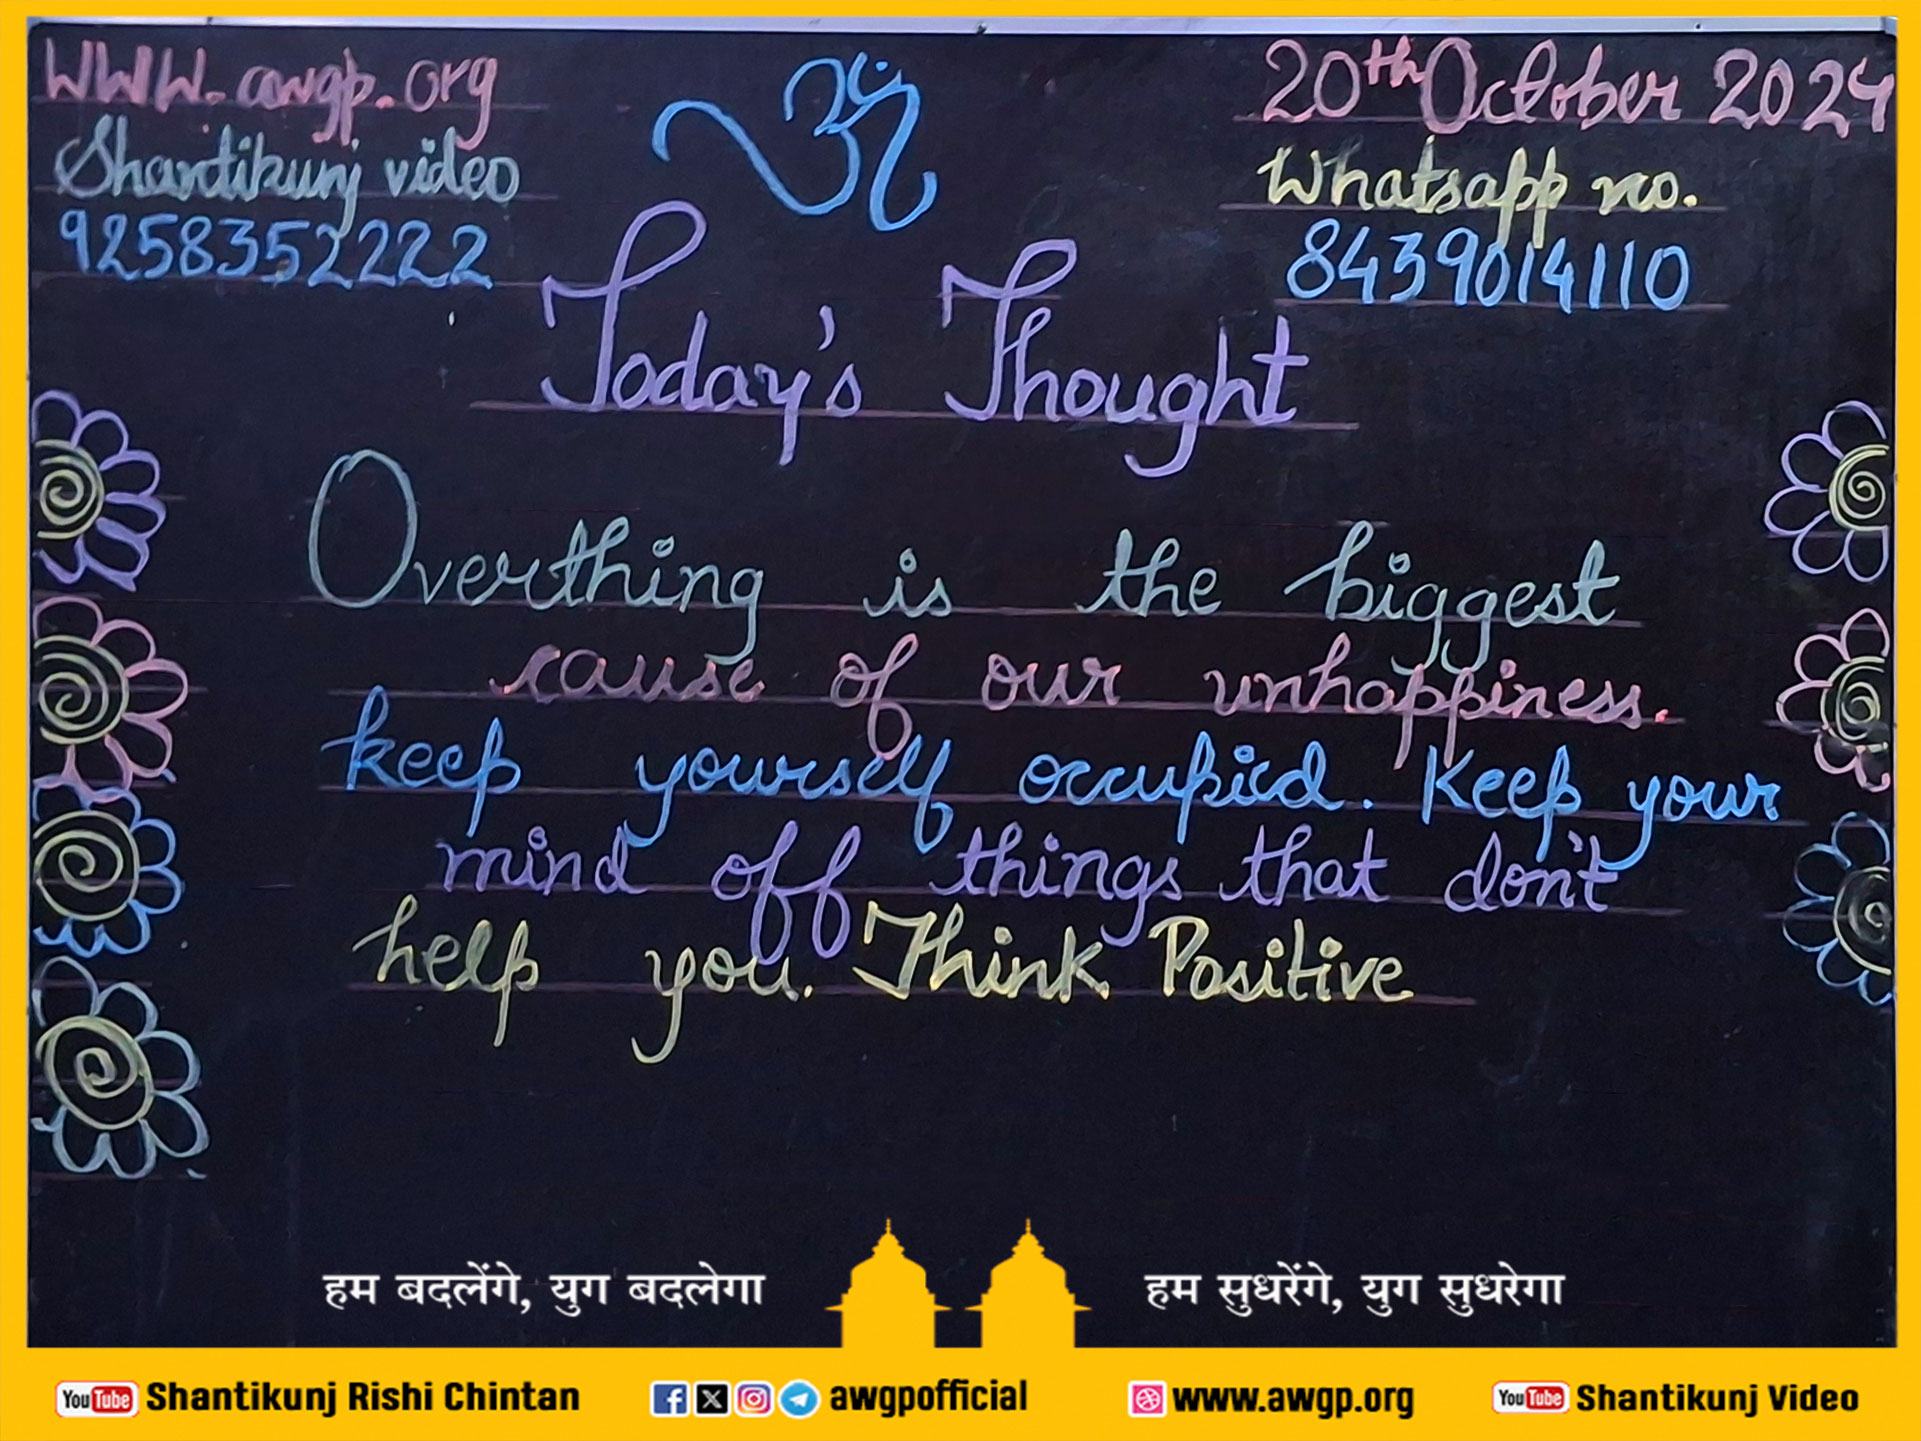 WWW.awgp.org
Shantikunj video
9258352222
ॐ
20th October 2024
Whatsapp no.
8439014110
Today's Thought
Overthing is the biggest
cause of our unhappiness.
keep yourself occupied. Keep your
mind off things that don't
help you. Think Positive
हम बदलेंगे, युग बदलेगा
हम सुधरेंगे, युग सुधरेगा
YouTube Shantikunj Rishi Chintan
awgpofficial
www.awgp.org
YouTube Shantikunj Video